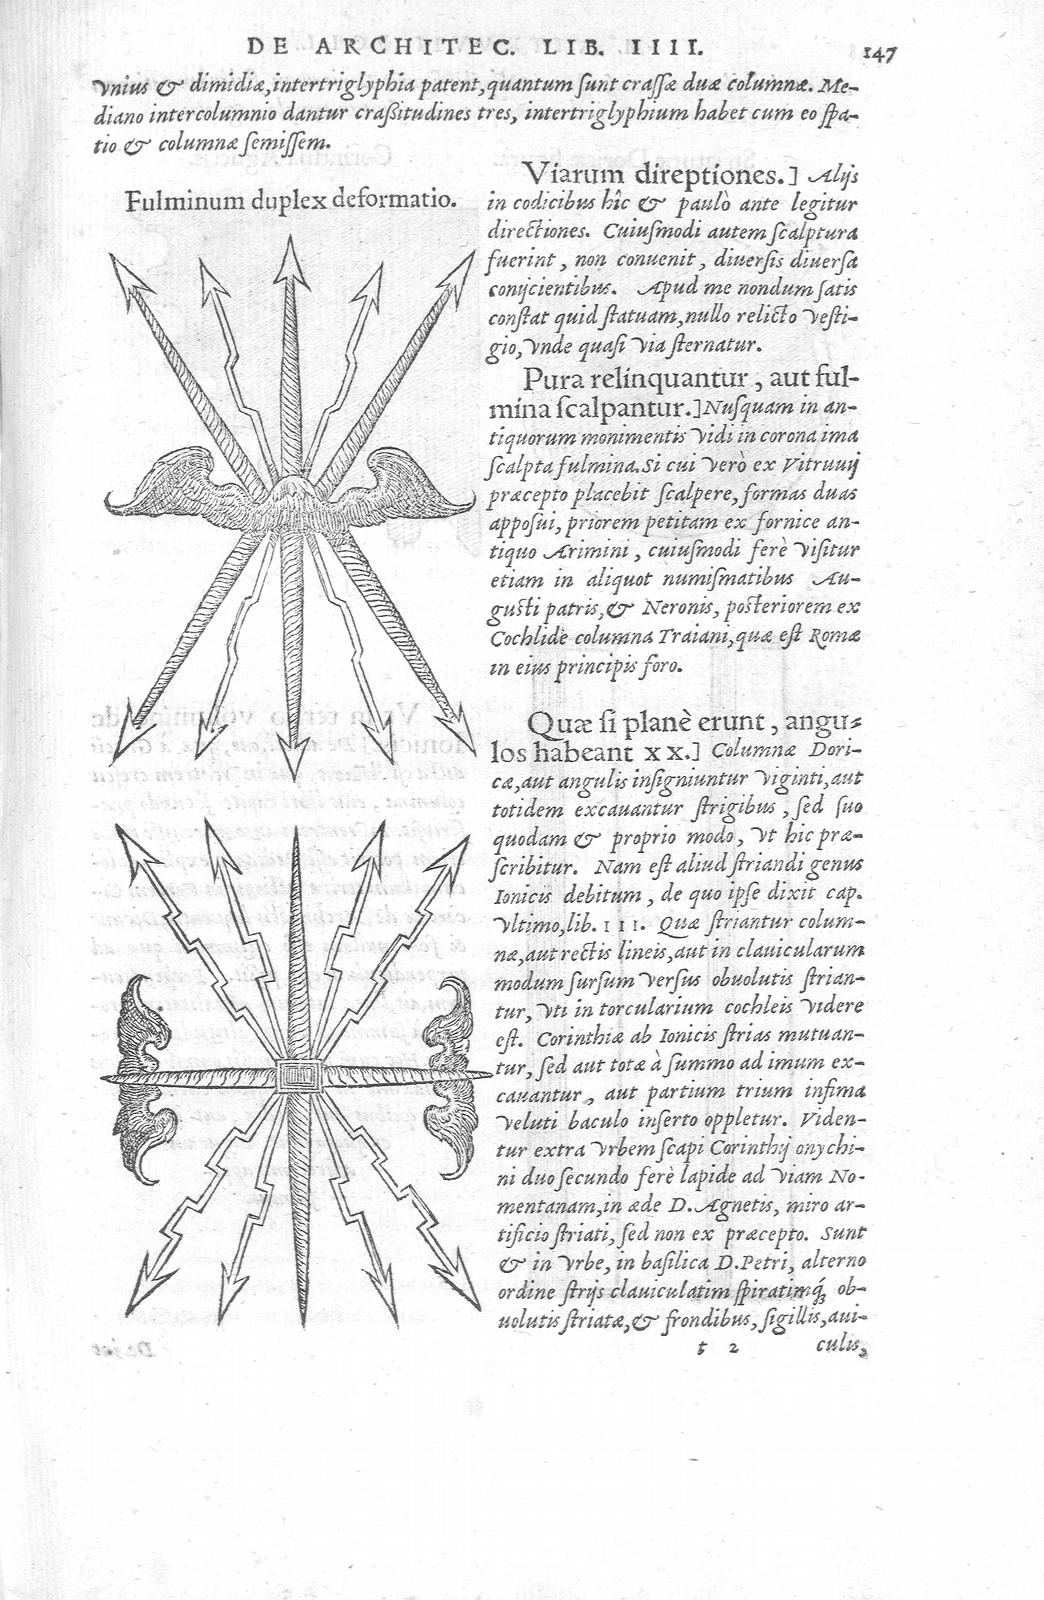 DE ARCHITEC. LIB. IIII. 147
vnius & dimidiæ, intertriglyphia patent, quantum ſunt craſſæ duæ columnæ. Me-
diano intercolumnio dantur craſſitudines tres, intertriglyphium habet cum eo ſpa-
tio & columnæ ſemiſſem.
Fulminum duplex deformatio.
Viarum direptiones.] Alijs
in codicibus hîc & paulò ante legitur
directiones. Cuiuſmodi autem ſcalptura
fuerint, non conuenit, diuerſis diuerſa
conijcientibus. Apud me nondum ſatis
conſtat quid ſtatuam, nullo relicto veſti-
gio, vnde quaſi via ſternatur.
Pura relinquantur, aut ful-
mina ſcalpantur.] Nuſquam in an-
tiquorum monimentis vidi in corona ima
ſcalpta fulmina. Si cui verò ex Vitruuij
præcepto placebit ſcalpere, formas duas
appoſui, priorem petitam ex fornice an-
tiquo Arimini, cuiuſmodi ferè viſitur
etiam in aliquot numiſmatibus Au-
guſti patris, & Neronis, poſteriorem ex
Cochlide columna Traiani, quæ eſt Romæ
in eius principis foro.
Quæ ſi planè erunt, angu-
los habeant xx.] Columnæ Dori-
cæ, aut angulis inſigniuntur viginti, aut
totidem excauantur ſtrigibus, ſed ſuo
quodam & proprio modo, vt hic præ-
ſcribitur. Nam eſt aliud ſtriandi genus
Ionicis debitum, de quo ipſe dixit cap.
vltimo, lib. III. Quæ ſtriantur colum-
næ, aut rectis lineis, aut in clauicularum
modum ſurſum verſus obuolutis ſtrian-
tur, vti in torcularium cochleis videre
eſt. Corinthiæ ab Ionicis ſtrias mutuan-
tur, ſed aut totæ à ſummo ad imum ex-
cauantur, aut partium trium infima
veluti baculo inſerto oppletur. Viden-
tur extra vrbem ſcapi Corinthij onychi-
ni duo ſecundo ferè lapide ad viam No-
mentanam, in æde D. Agnetis, miro ar-
tificio ſtriati, ſed non ex præcepto. Sunt
& in vrbe, in baſilica D. Petri, alterno
ordine ſtrijs clauiculatim ſpiratimq́; ob-
uolutis ſtriatæ, & frondibus, ſigillis, aui-
t 2 culis,